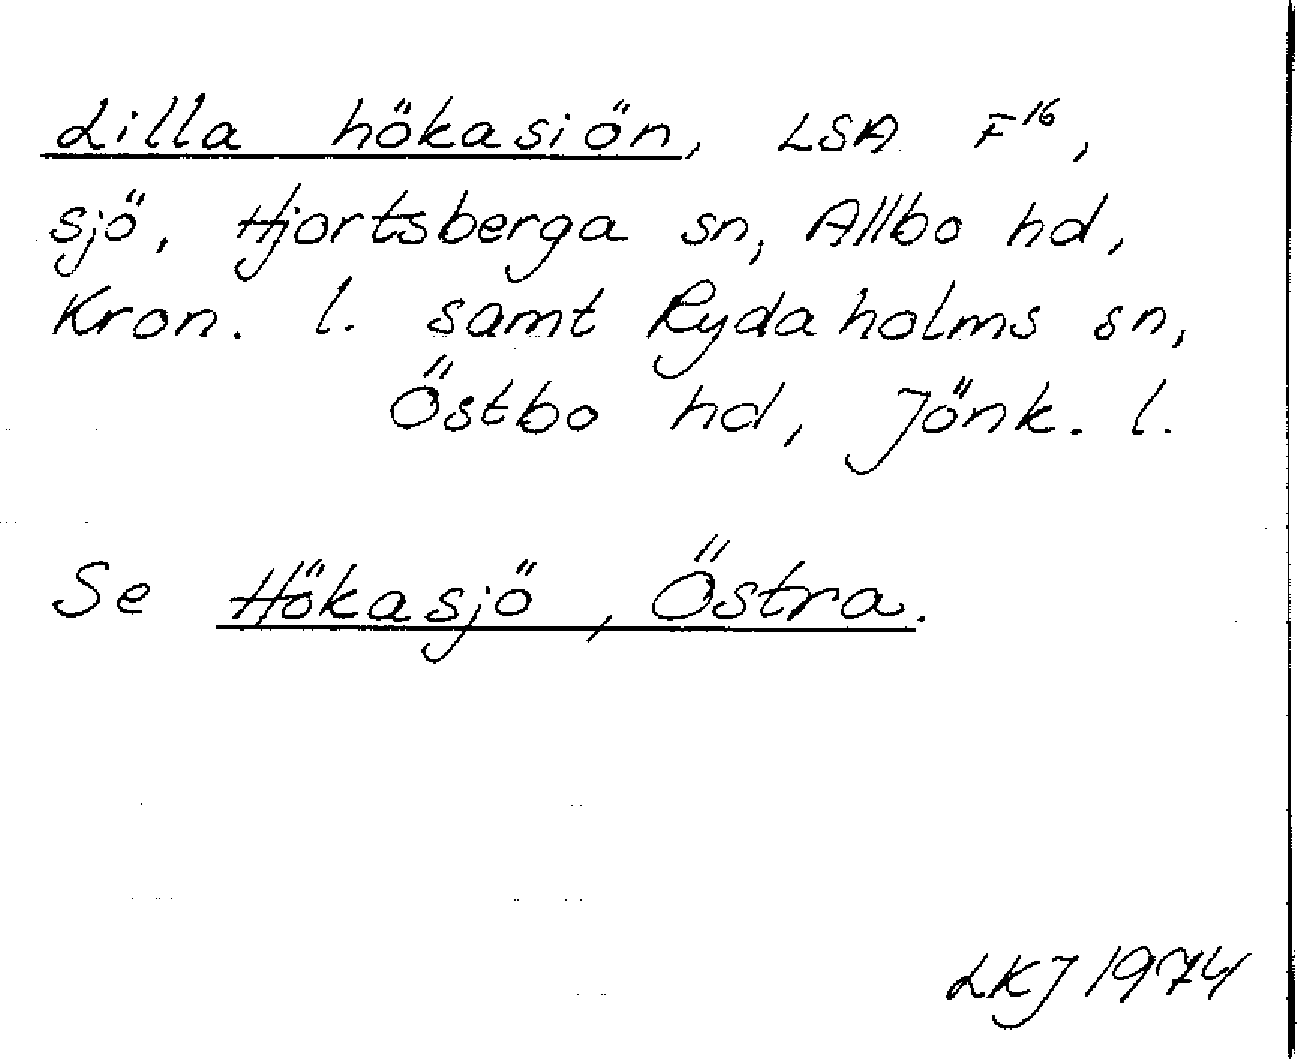 Lilla hökasiön, LSA F16,
sjö, Hjortsberga sn, Allbo hd,
Kron. l. samt Rydaholms sn,
Östbo hd, Jönk. l.
Se Hökasjö, Östra.
LKJ 1974